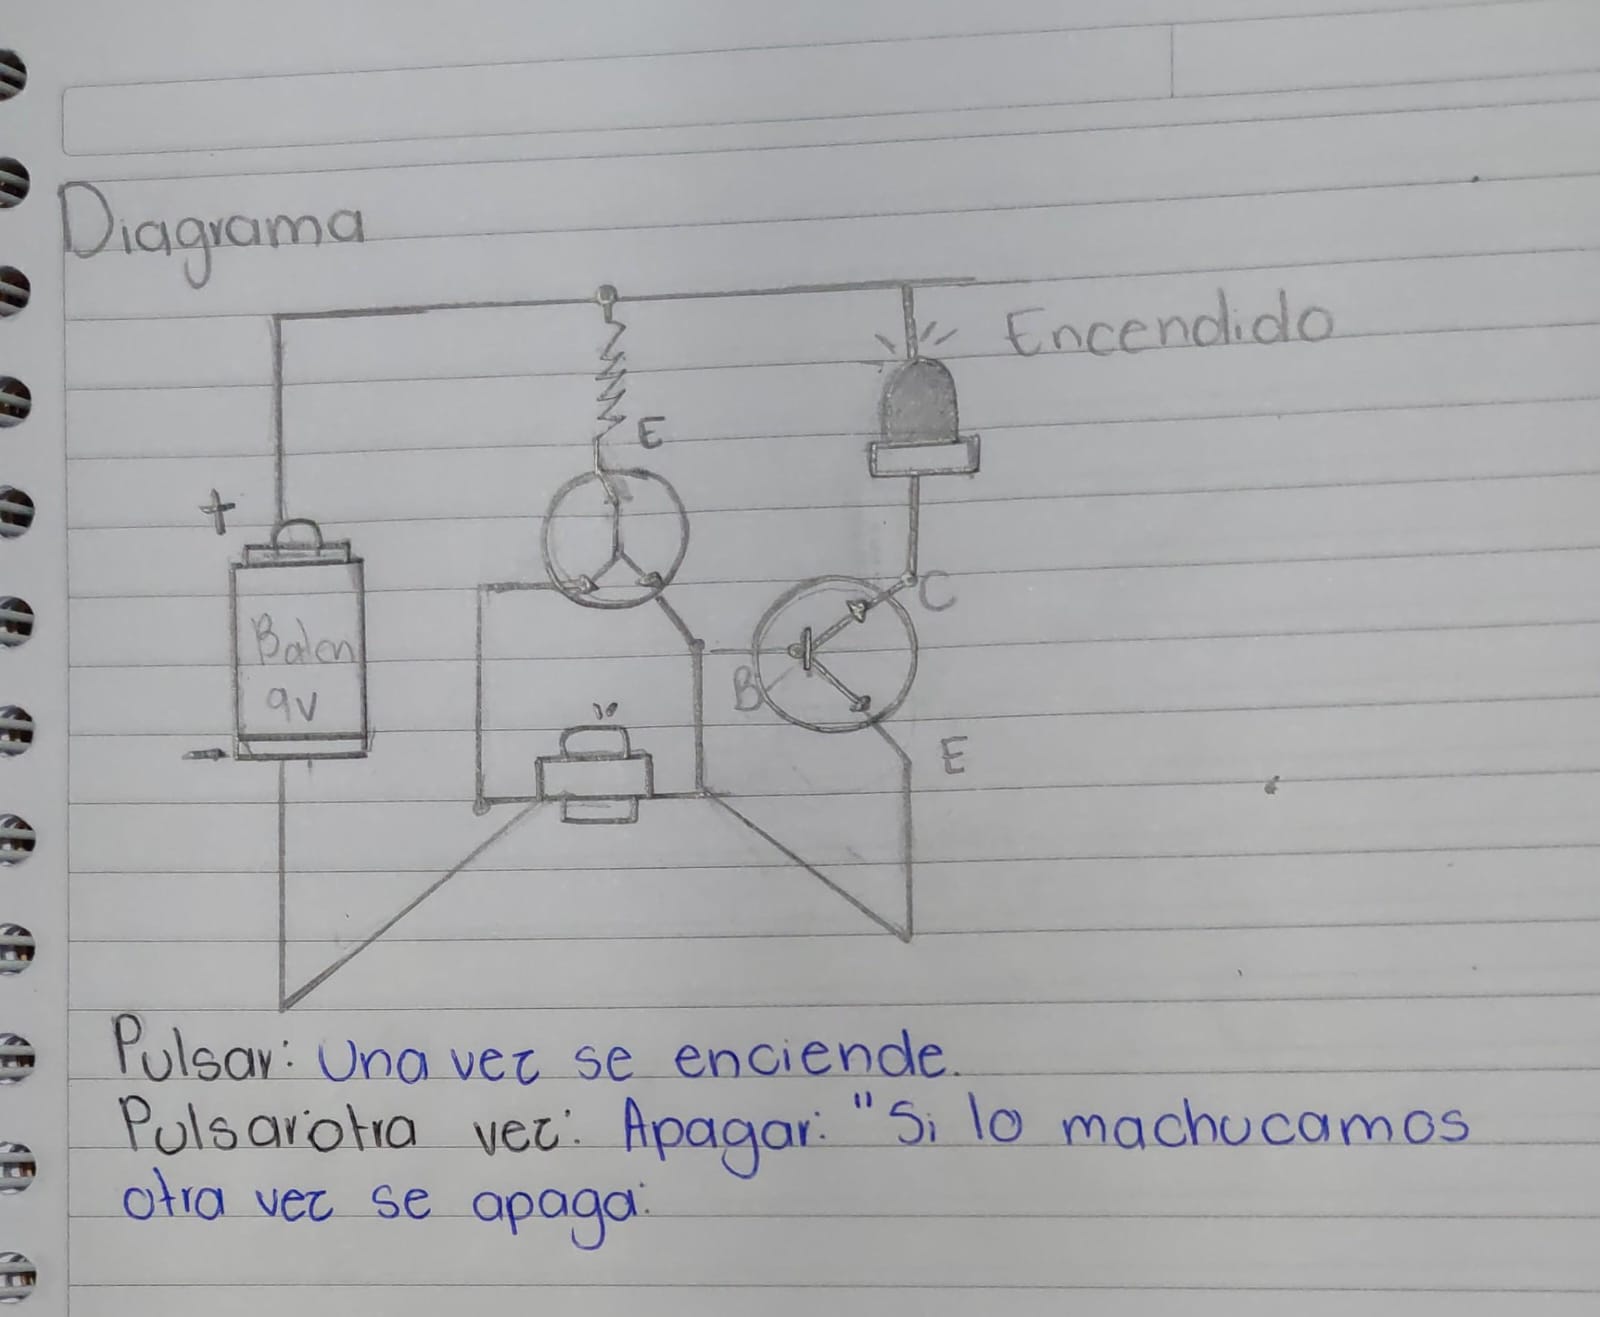 Diagrama
Encendido
E
+
C
9v
B
-
E
Pulsar: Una vez se enciende.
Pulsar otra vez: Apagar: "Si lo machucamos
otra vez se apaga: